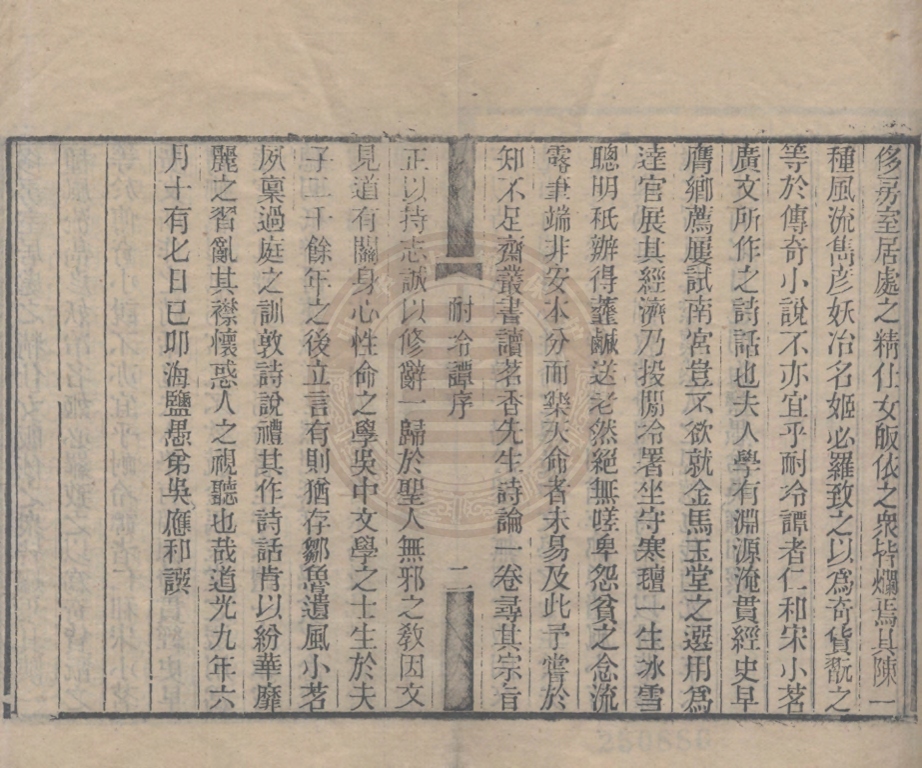 侈房室居處之精仕女皈依之衆皆爛焉具陳一
種風流雋彥妖冶名姬必羅致之以爲奇貨翫之
等於傳奇小說不亦宜乎耐冷譚者仁和宋小茗
廣文所作之詩話也夫人學有淵源淹貫經史早
膺鄉薦屢試南宮豈不欲就金馬玉堂之選用爲
達官展其經濟乃投閒冷署坐守寒氊一生冰雪
聰明秖辦得虀鹹送老然絕無嗟卑怨貧之念流
露筆端非安本分而樂天命者未易及此予嘗於
知不足齋叢書讀茗香先生詩論一卷尋其宗旨
耐冷譚序 二
正以持志誠以修辭一歸於聖人無邪之敎因文
見道有關身心性命之學吳中文學之士生於夫
子二千餘年之後立言有則猶存鄒魯遺風小茗
夙稟過庭之訓敦詩說禮其作詩話肯以紛華靡
麗之習亂其襟懷惑人之視聽也哉道光九年六
月十有七日巳卯海鹽愚弟吳應和譔